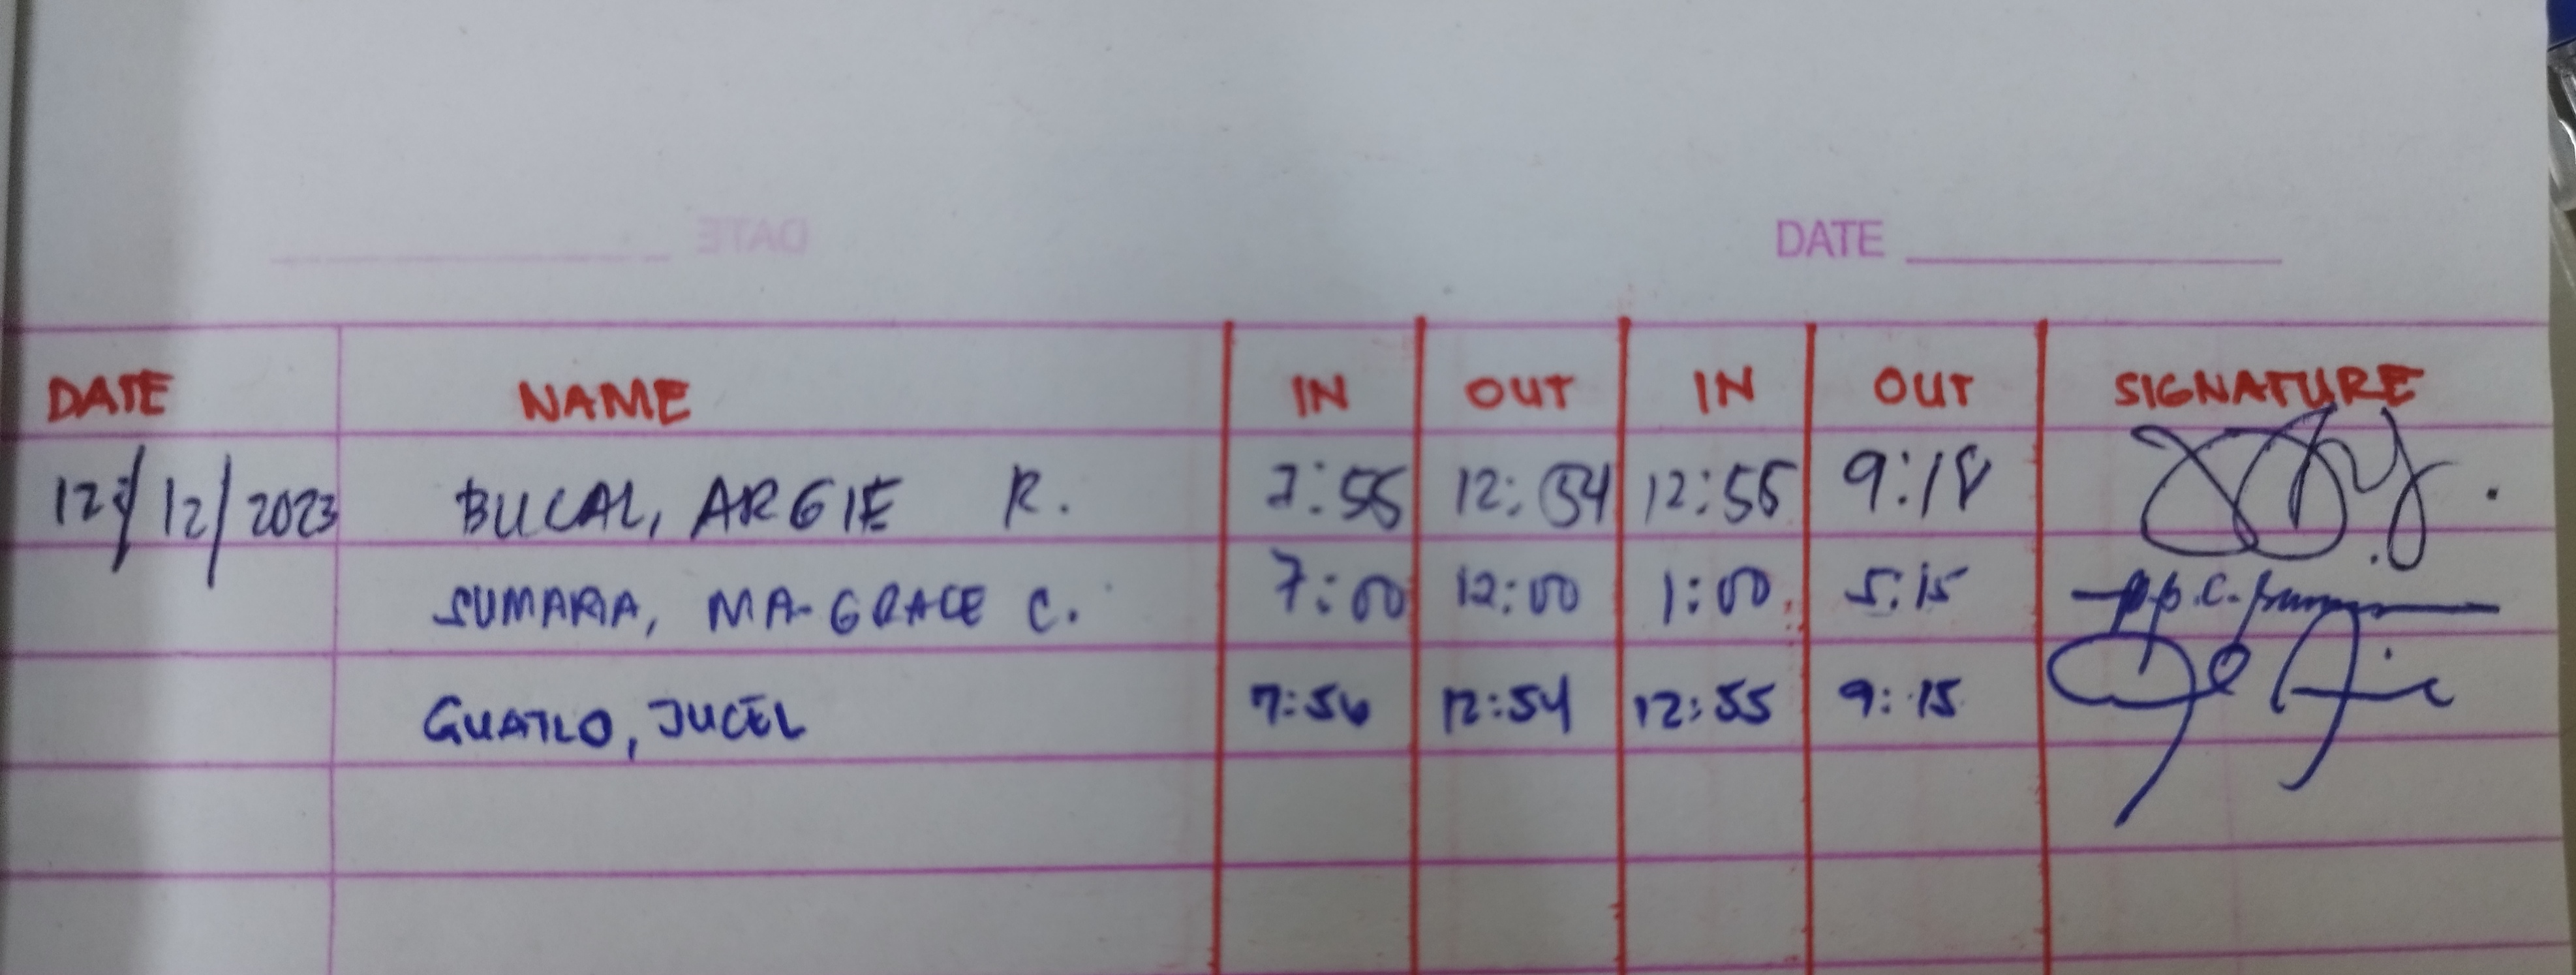 DATE
DATE NAME IN OUT IN OUT SIGNATURE
12/12/2023 BUCAL, ARGIE R. 7:56 12:54 12:55 9:18
SUMARIA, MA-GRACE C. 7:00 12:00 1:00 5:15
GUATLO, JUCEL 7:56 12:54 12:55 9:15